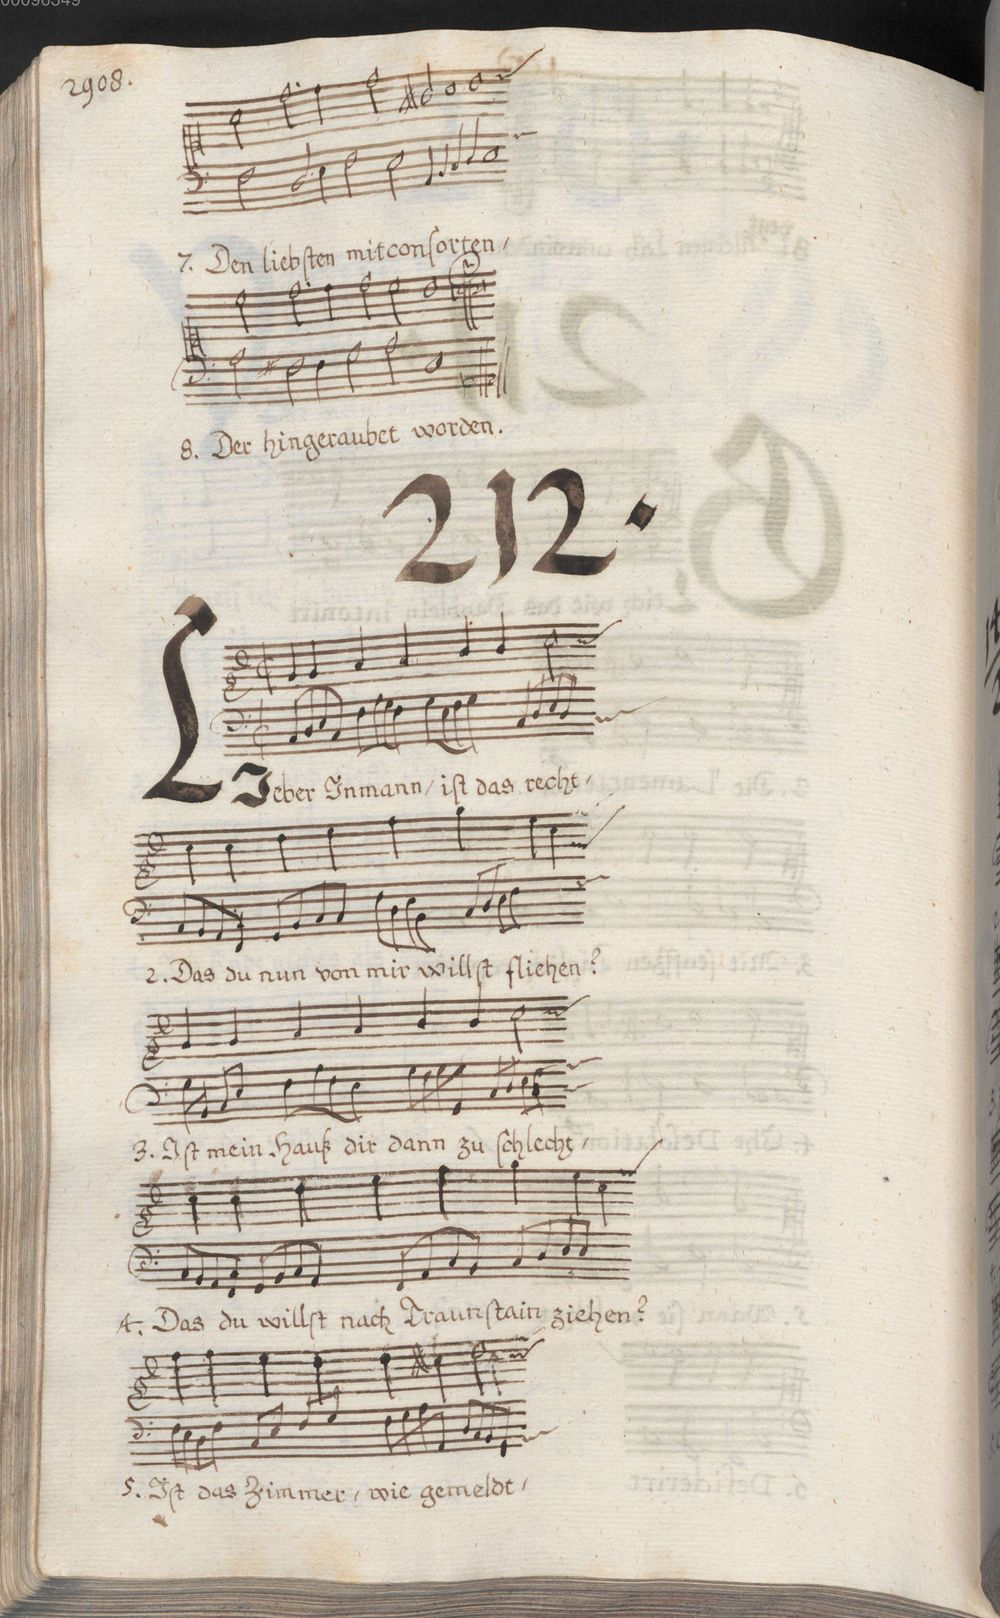 00096349
2908.
7. Den liebsten mitconsorten /
8. Der hingeraubet worden.
212.
LIeber Inmann / ist das recht /
2. Das du nun von mir willst fliehen?
3. Ist mein Hauß dir dann zu schlecht /
4. Das du willst nach Traunstain ziehen?
5. Ist das Zimmer / wie gemeldt /